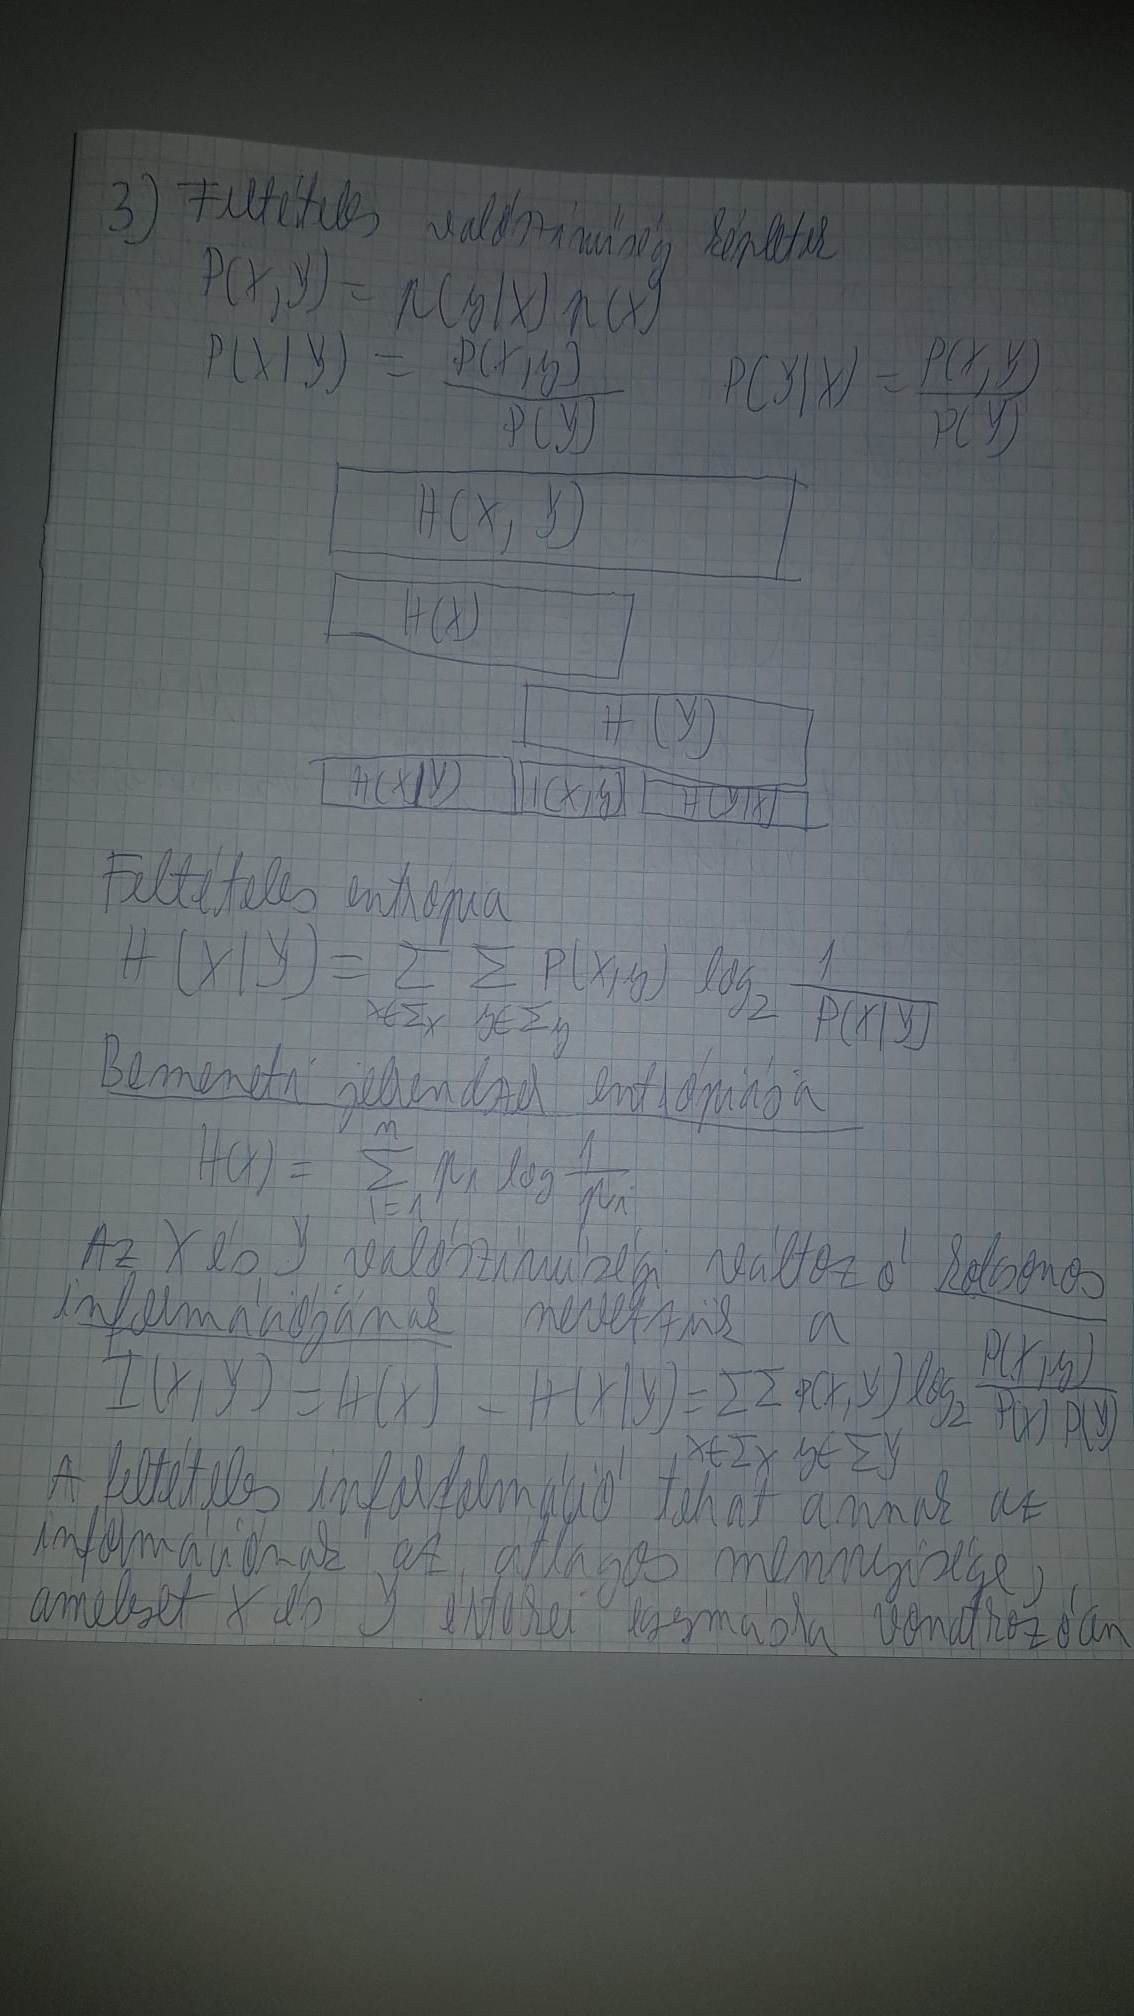 3) Feltételes valószínűség képletek
P(X,Y) = p(y|x) p(x)
P(X|Y) = P(X,y) / P(Y)    P(Y|X) = P(X,Y) / P(Y)
H(X, Y)
H(X)
H(Y)
H(X|Y) I(X,y) H(Y|X)
Feltételes entrópia
H(X|Y) = Σ x∈Σx Σ y∈Σy P(x,y) log2 1 / P(X|Y)
Bemeneti jelrendszer entrópiája
H(X) = Σ i=1 n pi log 1 / pi
Az X és Y valószínűségi változó kölcsönös
információjának nevezzük a
I(X,Y) = H(X) - H(X|Y) = ΣΣ x∈Σx y∈Σy P(X,Y) log2 P(X,y) / P(X) P(Y)
A feltételes tehát annak az
információnak az átlagos mennyisége,
amelyet X és Y értékei egymásra vonatkozóan